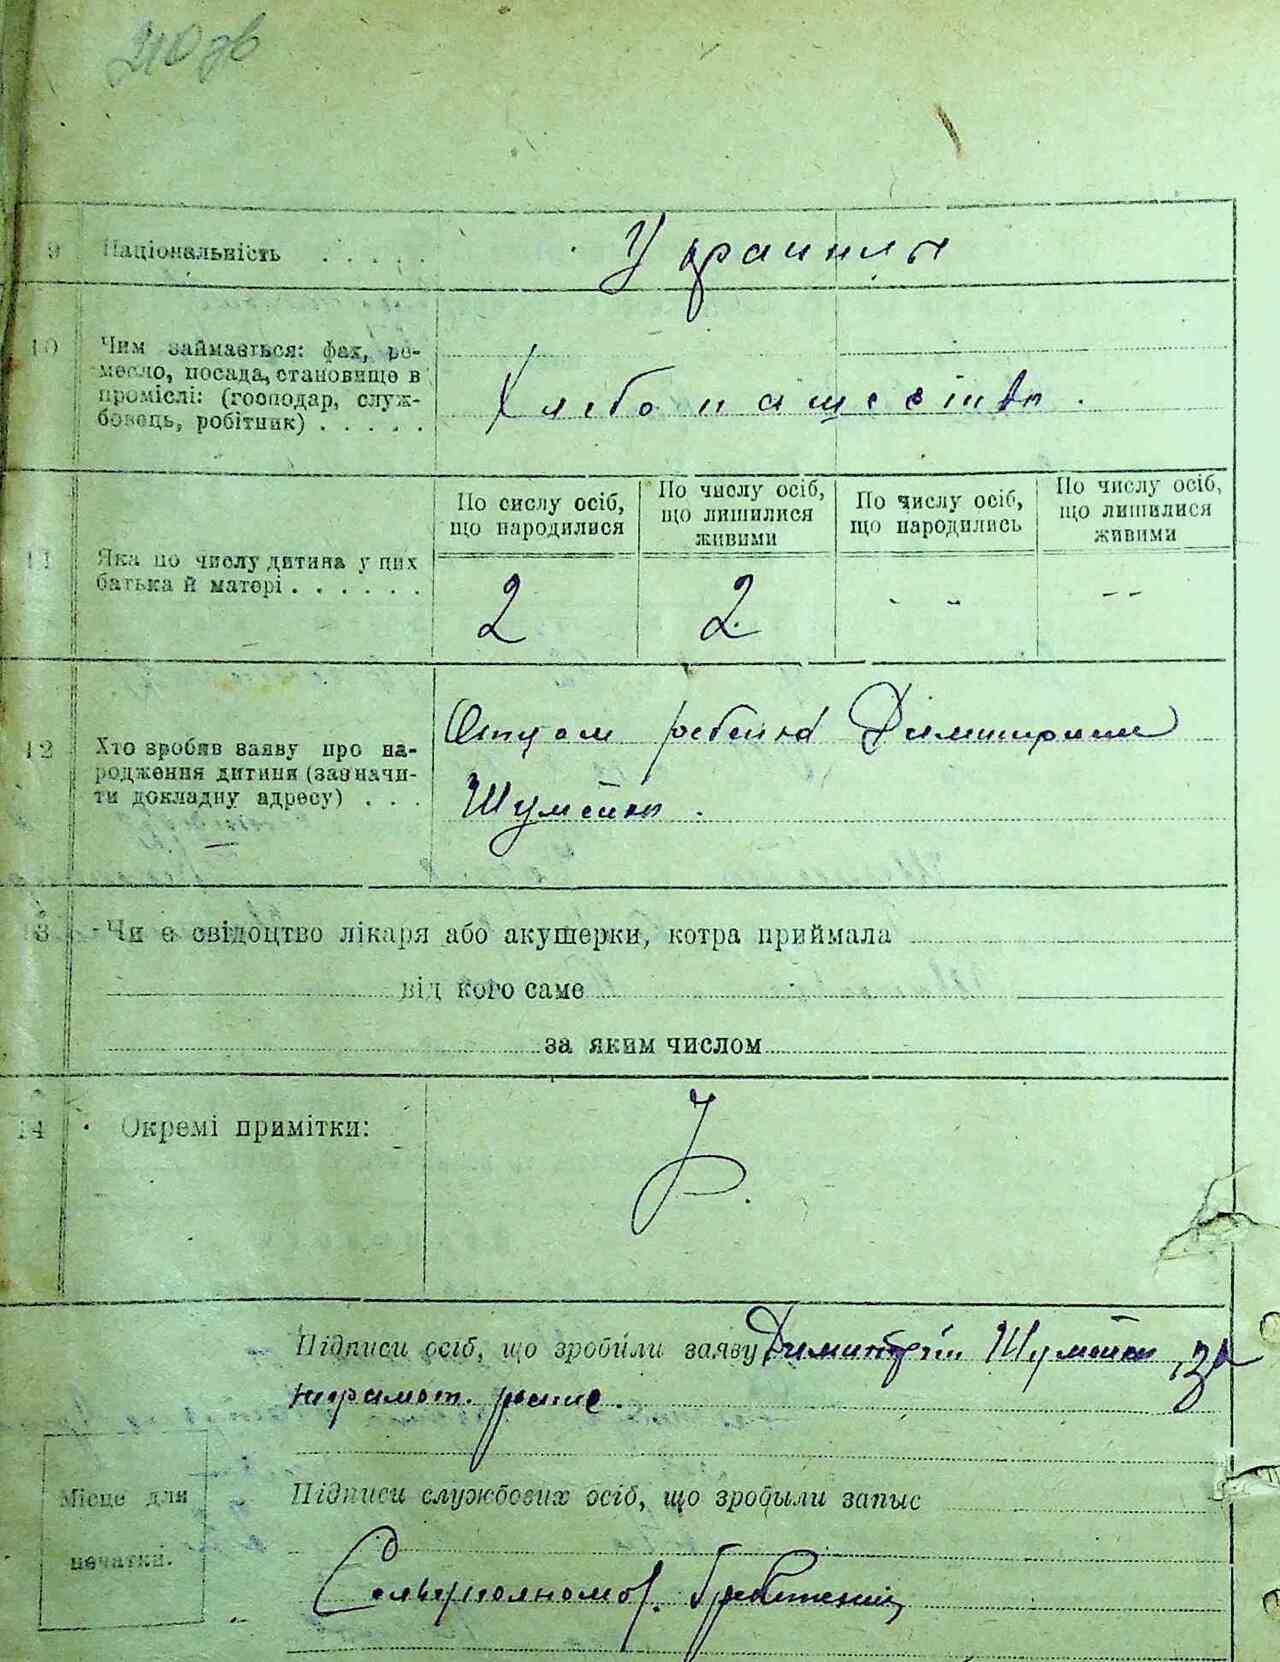 210 зв
9 Національність . . . . . Украинцы
10 Чим займається: фах, ре-
месло, посада, становище в
проміслі: (господар, служ-
бовець, робітник) . . . . .
Хлебопашество .
По сислу осіб,
що народилися
По числу осіб,
що лишилися
живими
По числу осіб,
що народились
По числу осіб,
що лишилися
живими
11 Яка по числу дитина у них
батька й матері . . . . . .
2 2. - - - -
12 Хто зробив заяву про на-
родження дитини (зазначи-
ти докладну адресу) . . .
Отцом ребенка Димитрием
Шумейко .
13 Чи є свідоцтво лікаря або акушерки, котра приймала
від кого саме
за яким числом
14 Окремі примітки:
Підписи осіб, що зробили заяву Димитрій Шумейко, за
неграмот. распис.
Місце для
печатки.
Підписи службових осіб, що зробыли запыс